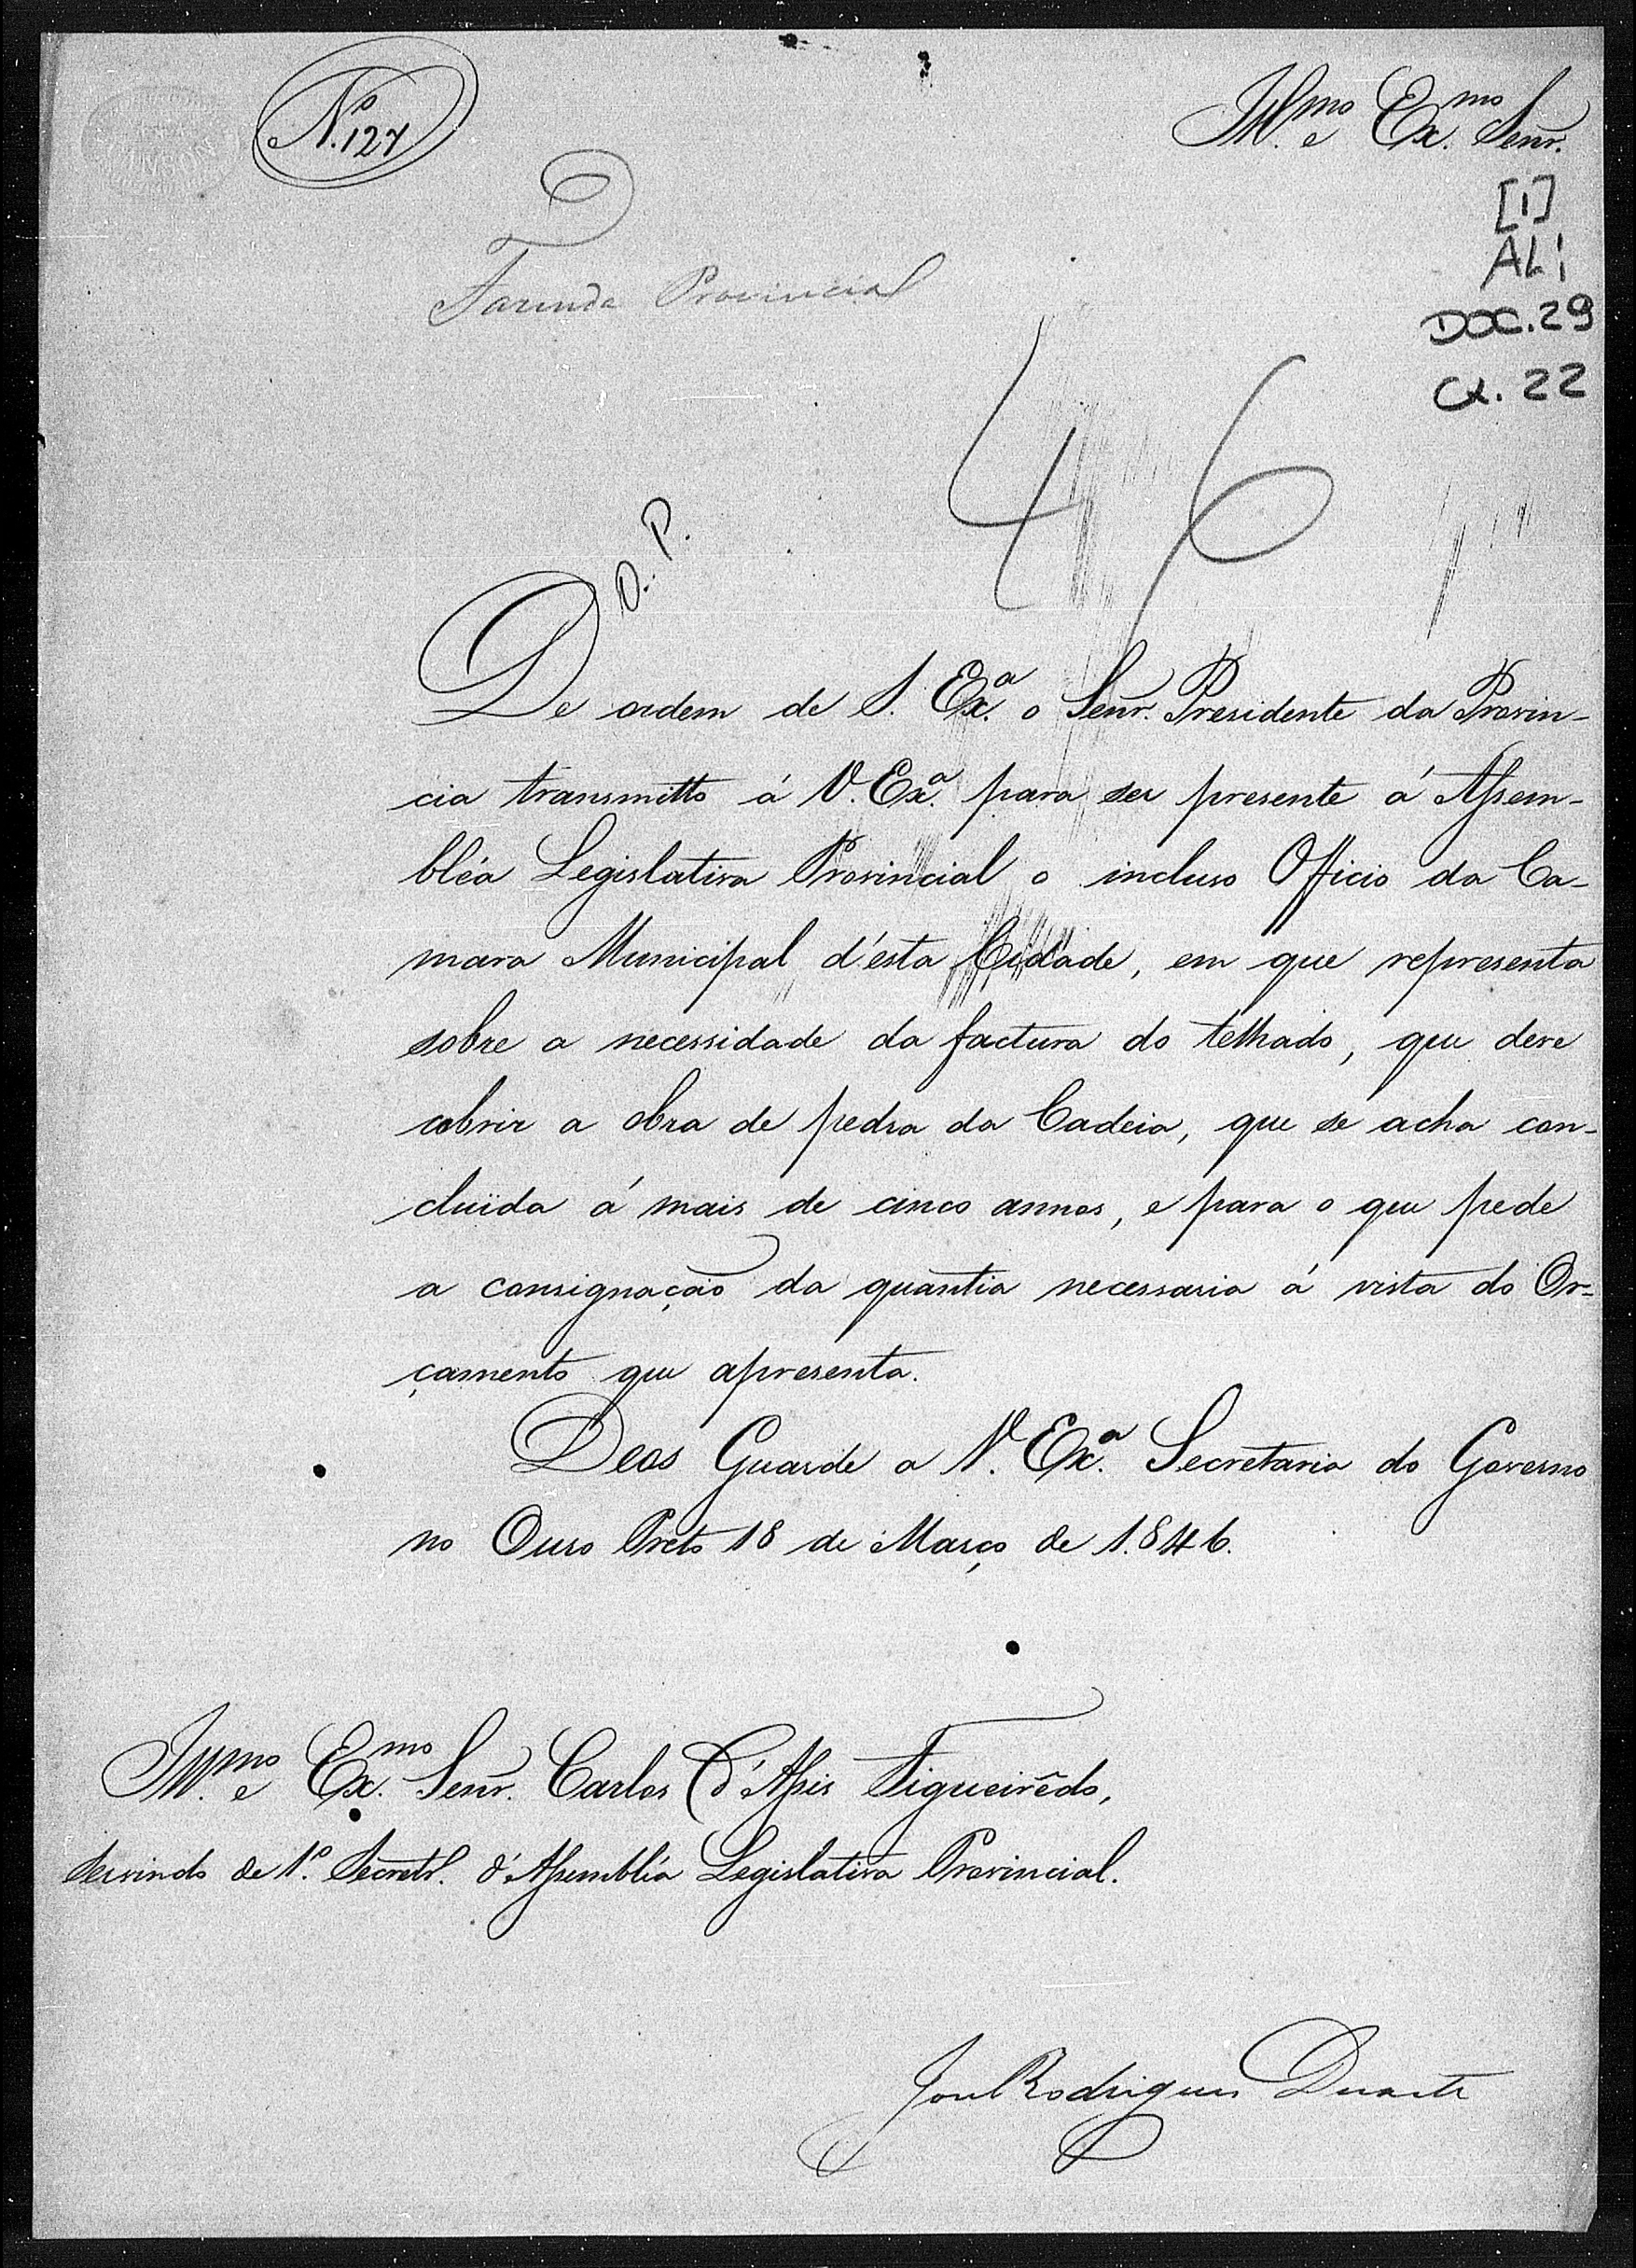 N.º 127
Ill.mo e Ex.mo Senr.
[1]
AL1
DOC. 29
CX. 22
Fazenda Provincial
46
O. P.
De ordem de S. Ex.a o Senr. Presidente da Provin-
cia transmitto á V. Ex.a para ser presente á Assem-
bléa Legislativa Provincial o incluso Officio da Ca-
mara Municipal d'esta Cidade, em que representa
sobre a necessidade da factura do telhado, que deve
cobrir a obra de pedra da Cadeia, que se acha con-
cluida á mais de cinco annos, e para o que pede
a consignação da quantia necessaria á vista do Or-
çamento que apresenta.
Deos Guarde a V. Ex.a Secretaria do Governo
no Ouro Preto 18 de Março de 1.846.
Ill.mo e Ex.mo Senr. Carlos d'Assis Figueirêdo,
servindo de 1.º Secretr. d'Assembléa Legislativa Provincial.
José Rodrigues Duarte